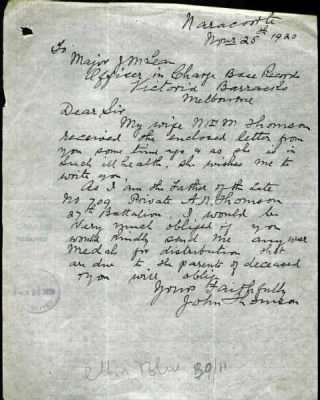 Naracoorte
Novr 25th 1920
To
Major J McLean
Officer in Charge Base Records
Victoria Barracks
Melbourne
Dear Sir
My wife Mrs M Thomson
received the enclosed letter from
you some time ago & as she is in
such ill health, she wishes me to
write you
As I am the Father of the Late
No 709 Private A.R. Thomson
27th Battalion I would be
very much obliged if you
would kindly send me any war
Medal for distribution that
are due to the parents of deceased
& you will oblige
Yours Faithfully
John Thomson
B9/11